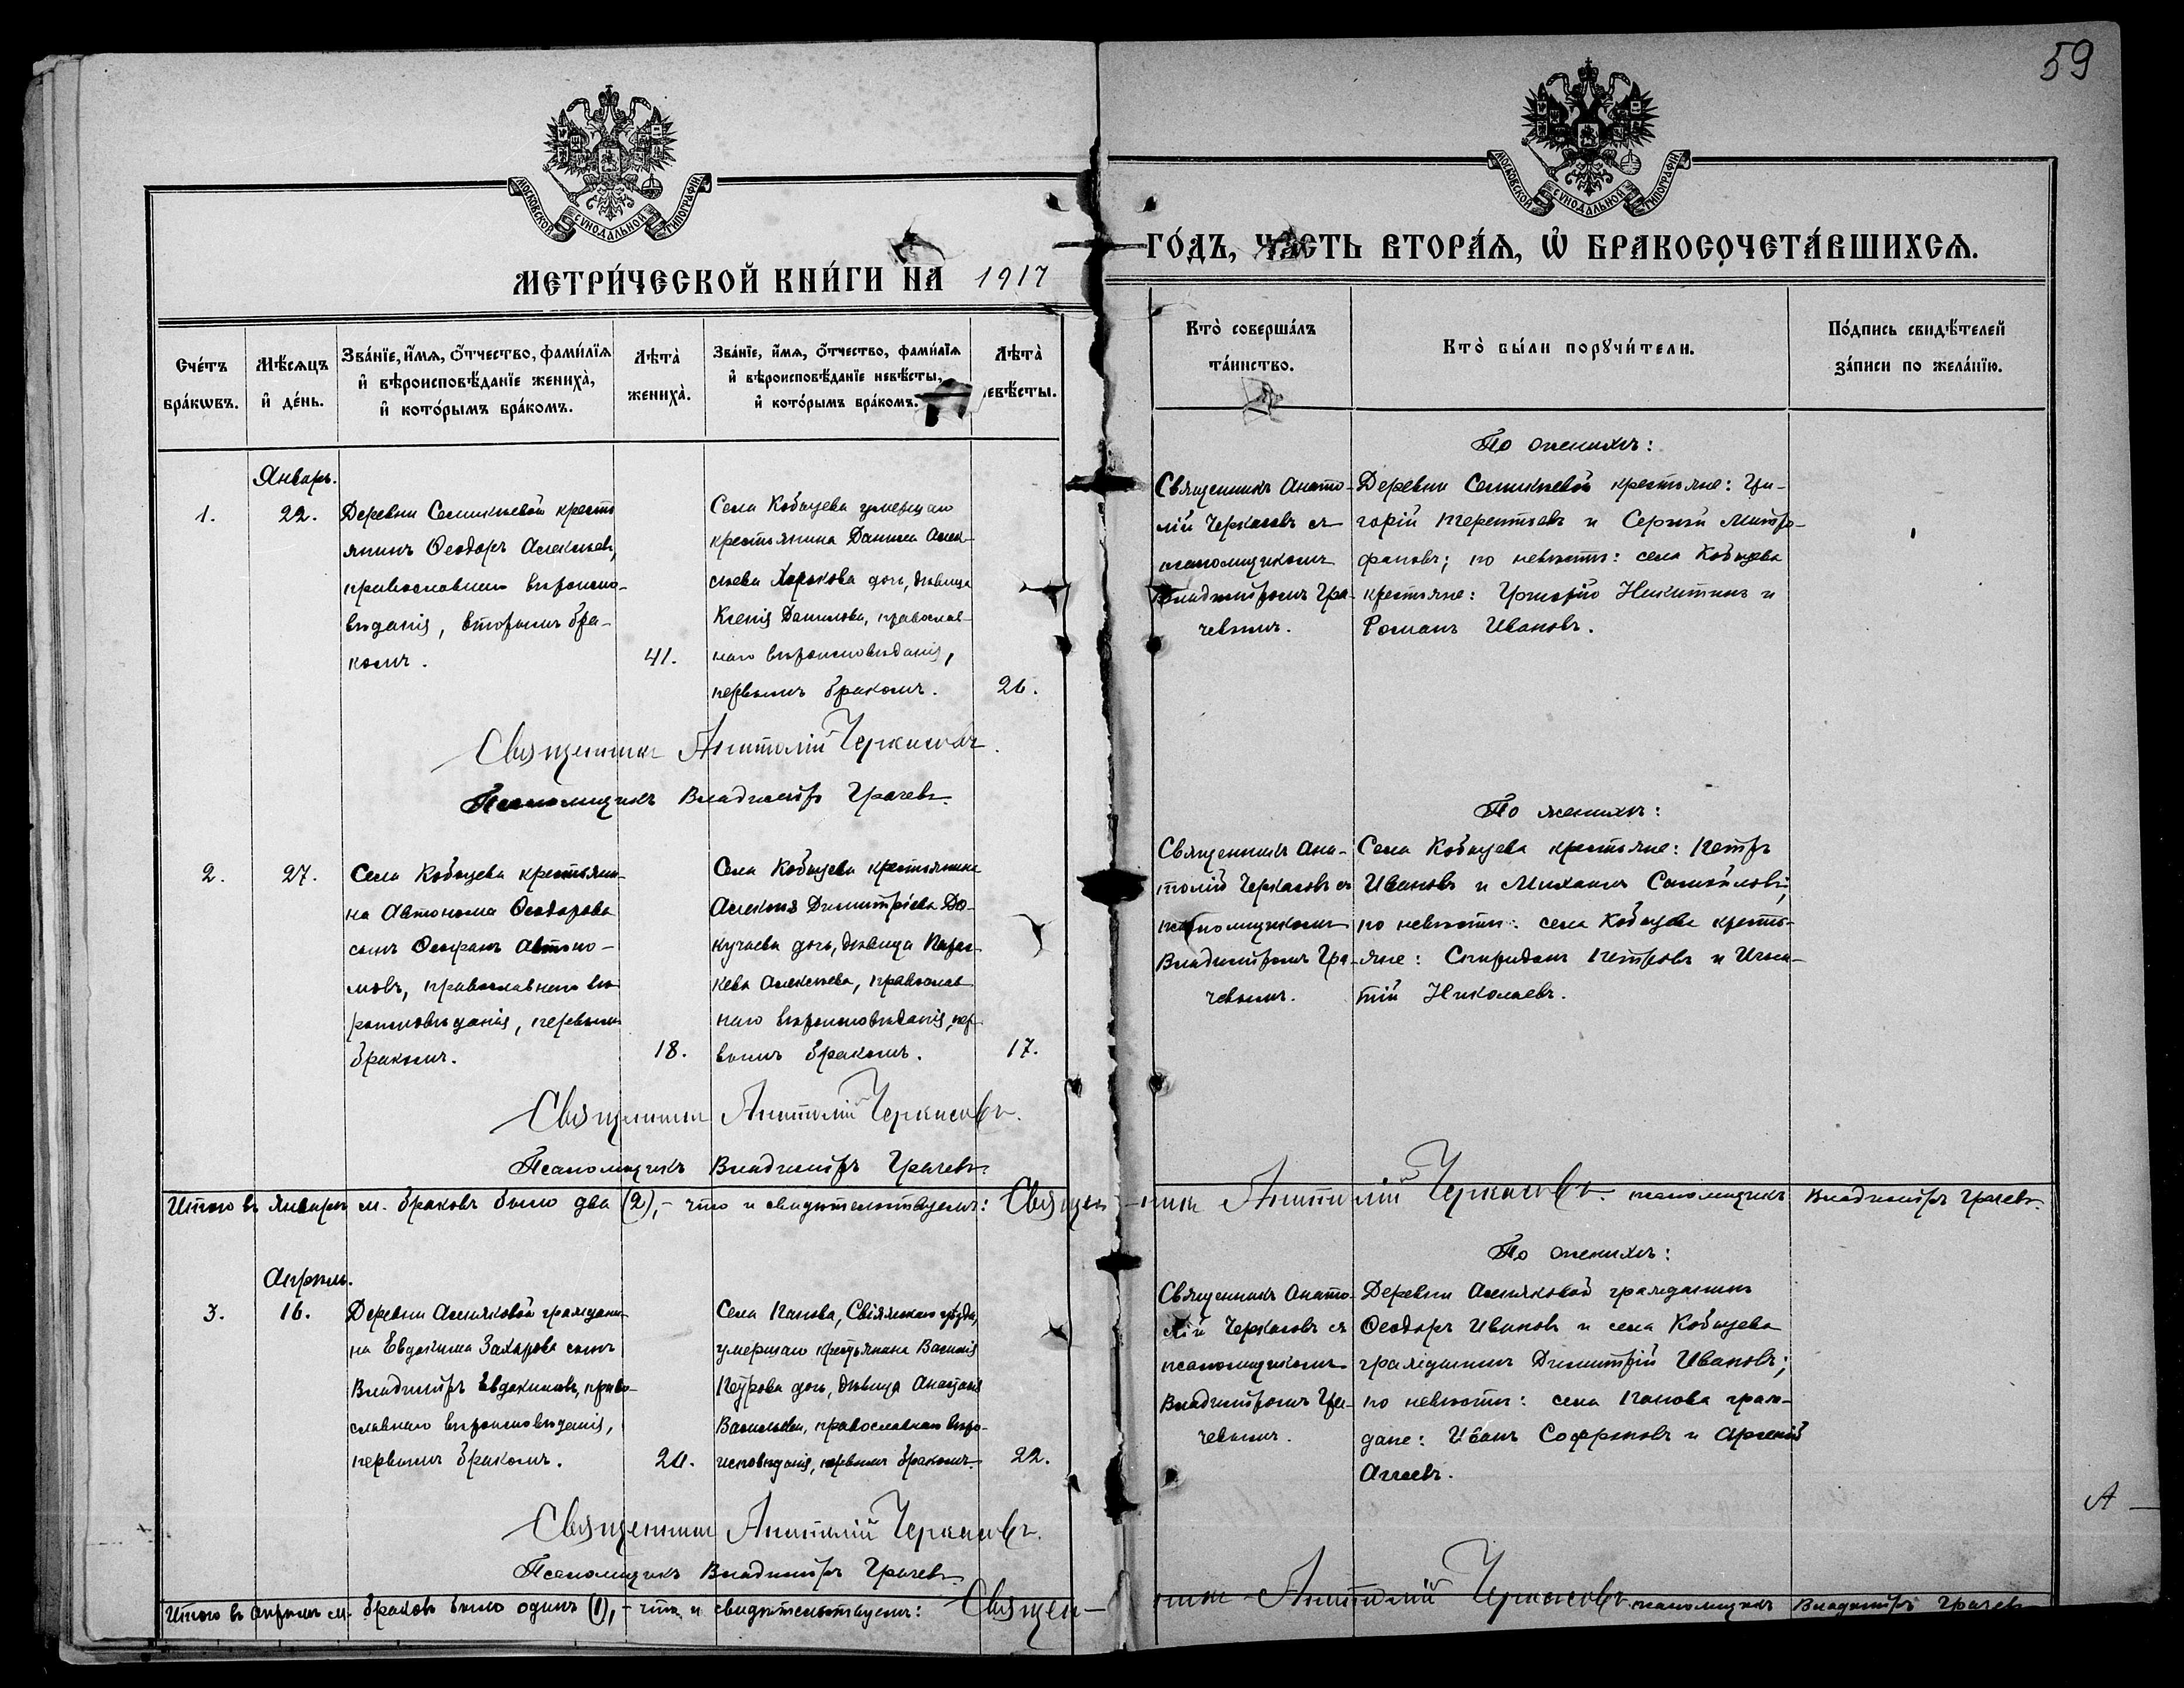 59
МОСКОВСКОЙ СѴНОДАЛЬНОЙ ТИПОГРАФІИ
МОСКОВСКОЙ СѴНОДАЛЬНОЙ ТИПОГРАФІИ
МЕТРИ́ЧЕСКОЙ КНИ́ГИ НА 1917
ГО́ДЪ, ЧА́СТЬ ВТОРА́Ѧ, Ѡ҆ БРАКОСОЧЕТА́ВШИХСѦ.
Сче́тъ
бра́кѡвъ.
Мѣ́сѧцъ
и҆ де́нь.
Зва́нїе, и҆́мѧ, ѻ҆́тчество, фами́лїѧ
и҆ вѣроисповѣ́данїе жениха̀,
и҆ кото́рымъ бра́комъ.
Лѣта̀
жениха̀.
Зва́нїе, и҆́мѧ, ѻ҆́тчество, фами́лїѧ
и҆ вѣроисповѣ́данїе невѣ́сты,
и҆ кото́рымъ бра́комъ.
Лѣта̀
невѣ́сты.
Кто̀ соверша́лъ
та́инство.
Кто̀ бы́ли порꙋчи́тели.
По́дпись свидѣ́телей
за́писи по жела́нїю.
Январь.
1.
22.
Деревни Семикѣевой кресть
янинъ Ѳеодоръ Алексѣевъ,
православнаго вѣроиспо-
вѣданія, вторымъ бра-
комъ.
41.
Села Кобыцева умершаго
крестьянина Данила Алек-
сѣева Хорькова дочь, дѣвица
Ксенія Данилова, православ-
наго вѣроисповѣданія,
первымъ бракомъ.
26.
По женихѣ:
Священникъ Анато-
лій Черкасовъ съ
псаломщикомъ
Владиміромъ Гра-
чевымъ.
Деревни Семикѣевой крестьяне: Гри-
горій Терентьевъ и Сергѣй Митро-
фановъ; по невѣстѣ: села Кобыцева
крестьяне: Григорій Никитинъ и
Романъ Ивановъ.
Священникъ Анатолій Черкасовъ.
Псаломщикъ Владиміръ Грачевъ.
2.
27.
Села Кобыцева крестьяни-
на Автонома Ѳеодорова
сынъ Ѳеофанъ Автоно-
мовъ, православнаго вѣ
роисповѣданія, первымъ
бракомъ.
18.
Села Кобыцева крестьянина
Алексѣя Димитріева До-
кучаева дочь, дѣвица Парас-
кева Алексѣева, православ
наго вѣроисповѣданія, пер-
вымъ бракомъ.
17.
По женихѣ:
Священникъ Ана-
толій Черкасовъ съ
псаломщикомъ
Владиміромъ Гра-
чевымъ.
Села Кобыцева крестьяне: Петръ
Ивановъ и Михаилъ Самойловъ;
по невѣстѣ: села Кобыцева кресть-
яне: Спиридонъ Петровъ и Игна-
тій Николаевъ.
Священникъ Анатолій Черкасовъ.
Псаломщикъ Владиміръ Грачевъ.
Итого въ январѣ м. браковъ было два (2),- что и свидѣтельствуемъ: Священ-никъ Анатолій Черкасовъ. псаломщикъ Владиміръ Грачевъ.
Апрѣль.
3.
16.
Деревни Асняковой граждани-
на Евдокима Захарова сынъ
Владиміръ Евдокимовъ, право-
славнаго вѣроисповѣданія,
первымъ бракомъ.
24.
Села Панова, Свіяжскаго уѣзда,
умершаго крестьянина Василія
Петрова дочь, дѣвица Анастасія
Васильева, православнаго вѣро-
исповѣданія, первымъ бракомъ.
22.
По женихѣ:
Священникъ Анато-
лій Черкасовъ съ
псаломщикомъ
Владиміромъ Гра-
чевымъ.
Деревни Асняковой гражданинъ
Ѳеодоръ Ивановъ и села Кобыцева
гражданинъ Димитрій Ивановъ;
по невѣстѣ: села Панова граж-
дане: Иванъ Софроновъ и Арсеній
Аггеевъ.
А -
Священникъ Анатолій Черкасовъ.
Псаломщикъ Владиміръ Грачевъ.
Итого въ апрѣлѣ м. браковъ было одинъ (1),- что и свидѣтельствуемъ: Священ-никъ Анатолій Черкасовъ. псаломщикъ Владиміръ Грачевъ